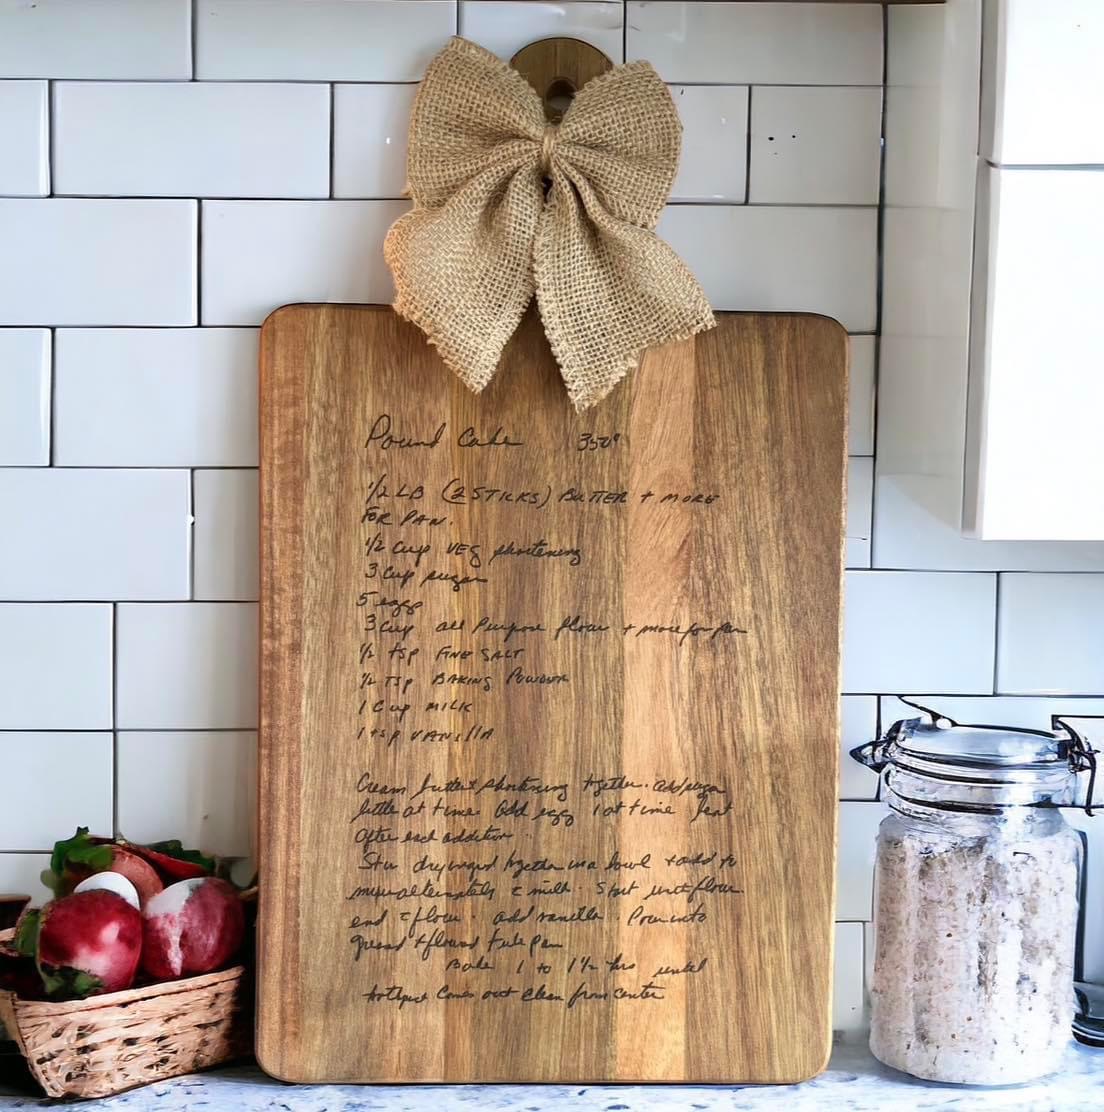 Pound Cake 350°
1/2 LB (2 STICKS) BUTTER + MORE
FOR PAN.
1/2 Cup VEG shortening
3 Cup sugar
5 eggs
3 Cup all Purpose flour + more for pan
1/2 tsp FINE SALT
1/2 TSP BAKING POWDER
1 Cup MILK
1 tsp VANIllA
Cream butter & shortening together. add sugar
little at time add egg 1 at time beat
after each addition.
Stir dry ingred together in a bowl + add to
alternately c milk. Start with flour
end c flour. add vanilla. Pour into
greased + floured tube pan
Bake 1 to 1 1/2 hrs until
toothpick Comes out Clean from center